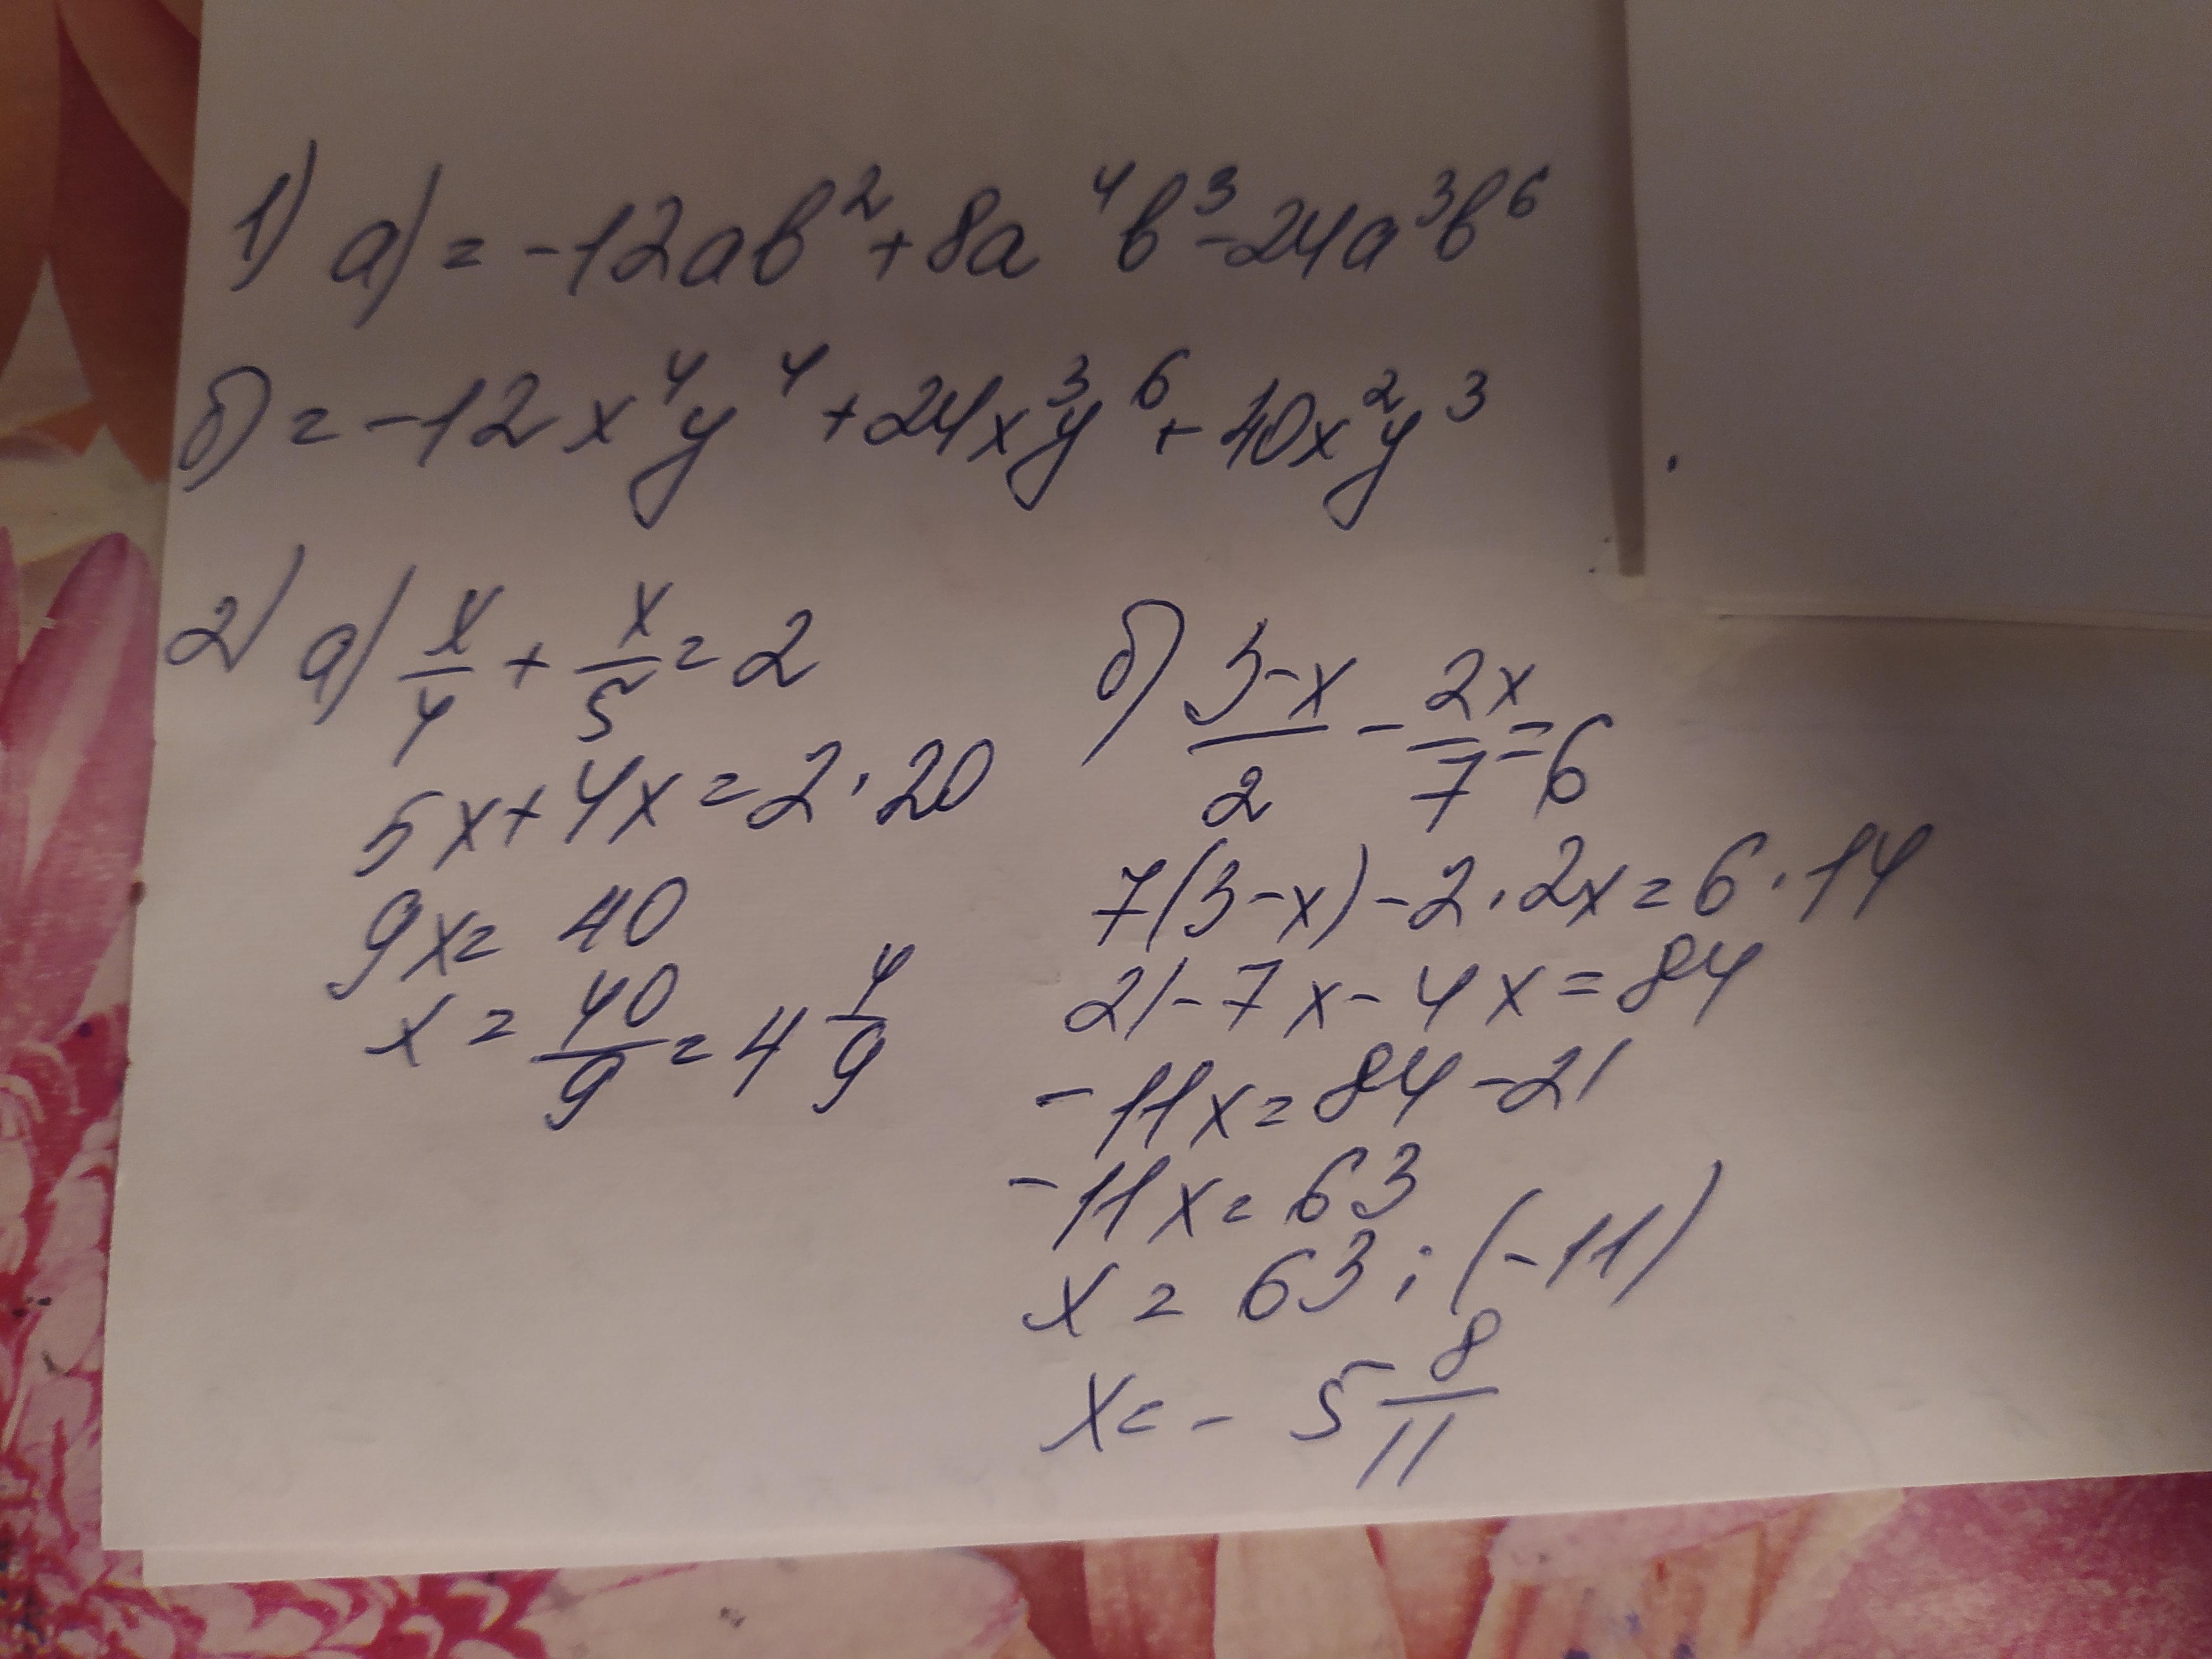 1) а) = -12ab² + 8a⁴b³ - 24a³b⁶
б) = -12x⁴y⁴ + 24x³y⁶ + 40x²y³
2) а) x/4 + x/5 = 2
5x + 4x = 2 · 20
9x = 40
x = 40/9 = 4 4/9
б) 3-x/2 - 2x/7 = 6
7(3-x) - 2 · 2x = 6 · 14
21 - 7x - 4x = 84
-11x = 84 - 21
-11x = 63
x = 63 : (-11)
x = - 5 8/11